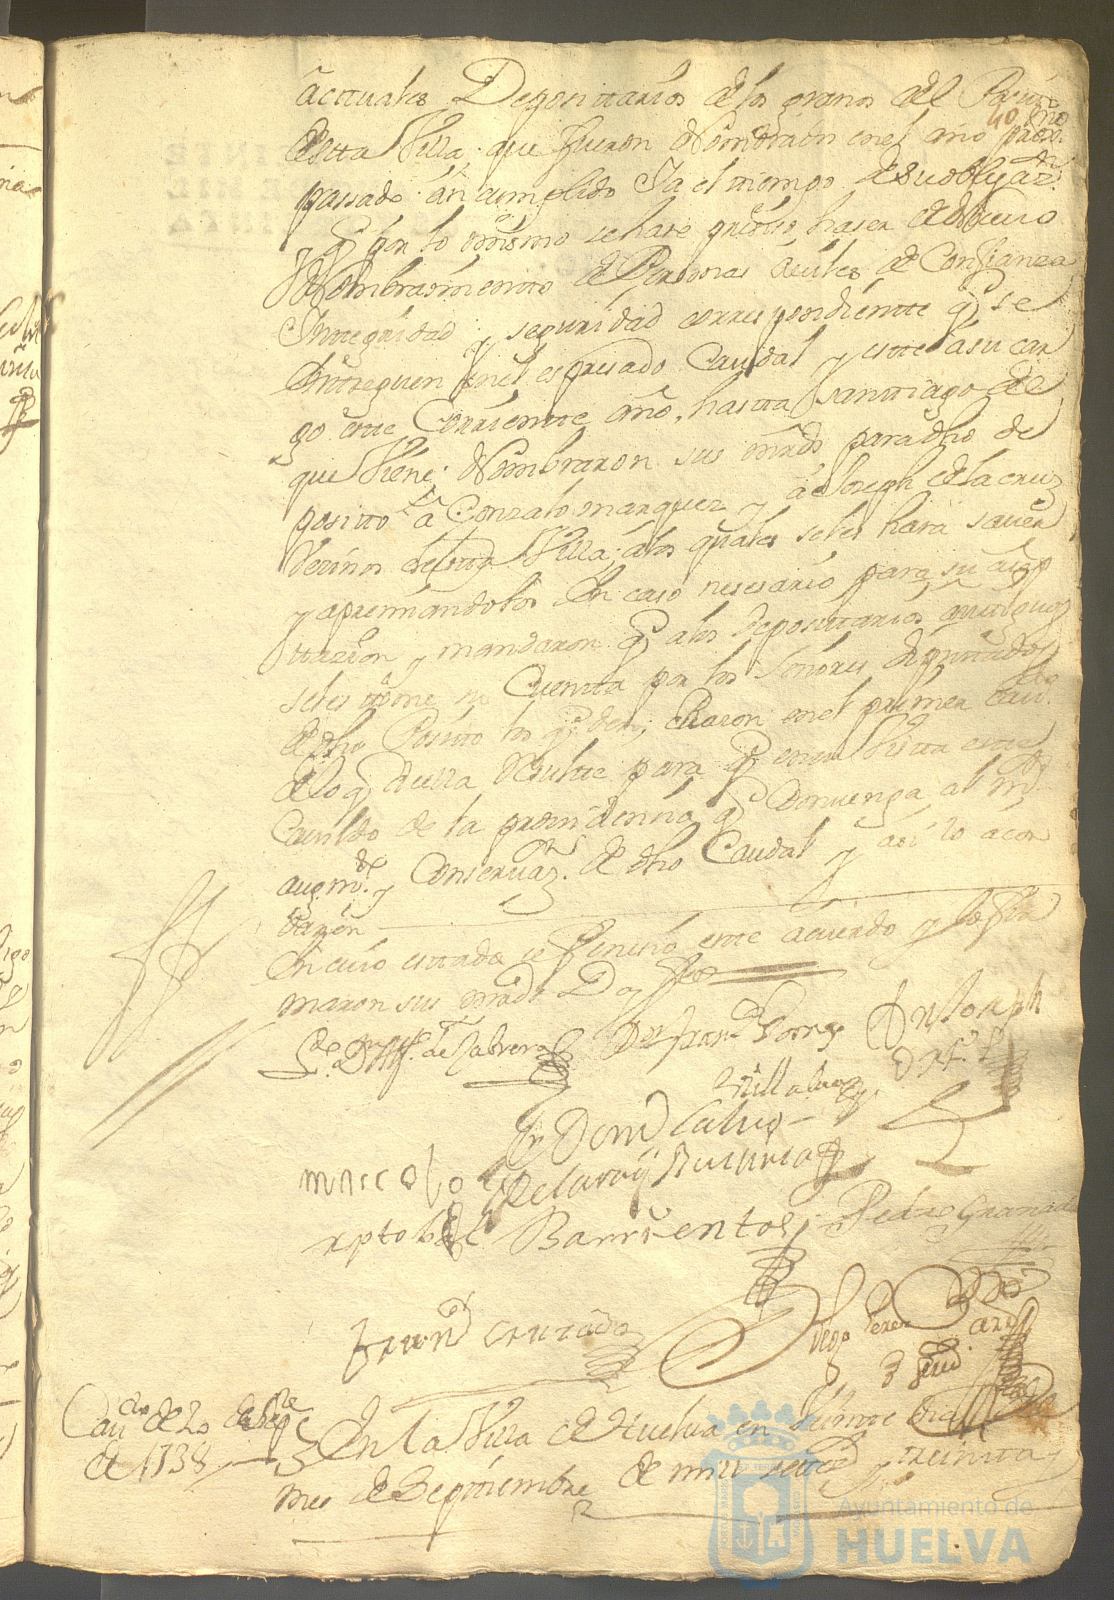 actuales Depositarios de los granos del Posito
40
de esta Villa que fueron Nombrados en el año proxmo
passado an cumplido Ya el tiempo de su obligazn
y qe por lo mismo se hase preciso haser de Nuevo
Nombramiento de Personas de confianza
Integridad y seguridad correspondiente qe se
entreguen en el espresado Caudal y este a su car
go este Corriente año, hasta Santiago de el
que Viene; Nombraron sus mrds para dho de
posito a Gonzalo marquez y a Joseph de la cruz
Vezinos de esta Villa, a los quales se les hará saver
y apremiandolos en caso nesesario para su azep
tazion y mandaron qe a los depositarios antiguos
se les tome su Cuenta por los señores Diputados
de dho Posito los qe den; en el primer cavdo
de lo qe de ella Resulte para qe en su Vista este
Cavildo de la providencia qe Convenga al
augmto y Conservazn de dho Caudal y así lo acor
daron
En cuio estado se fenesió este acuerdo y lo fir
maron sus mrds Doy fee
de Cabrera
Villalva
Dn Domo Calvo
marcolo
Bartolome Barrientos
Pedro Granado
Frano Cruzado
Diego Perez
Cavdo de 20 de Sepre
de 1738
En la Villa de Huelva en Veinte dias
mes de Septiembre de mill settos y treinta y
Ayuntamiento de
HUELVA